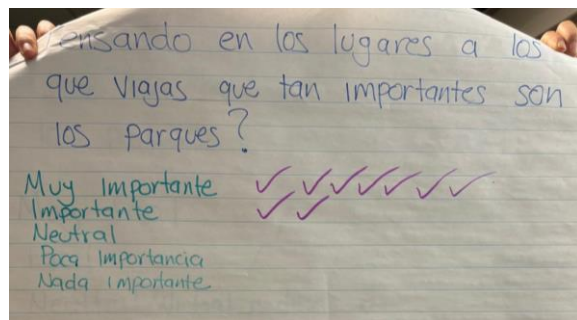 Pensando en los lugares a los
que viajas que tan importantes son
los parques?
Muy Importante ✓ ✓ ✓ ✓ ✓ ✓ ✓
Importante ✓ ✓
Neutral
Poca Importancia
Nada importante